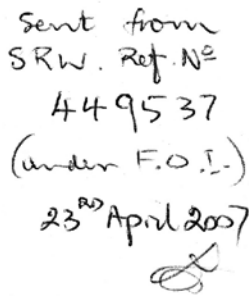 Sent from
SRW. Ref. Nº
449537
(under F.O.I.)
23RD April 2007